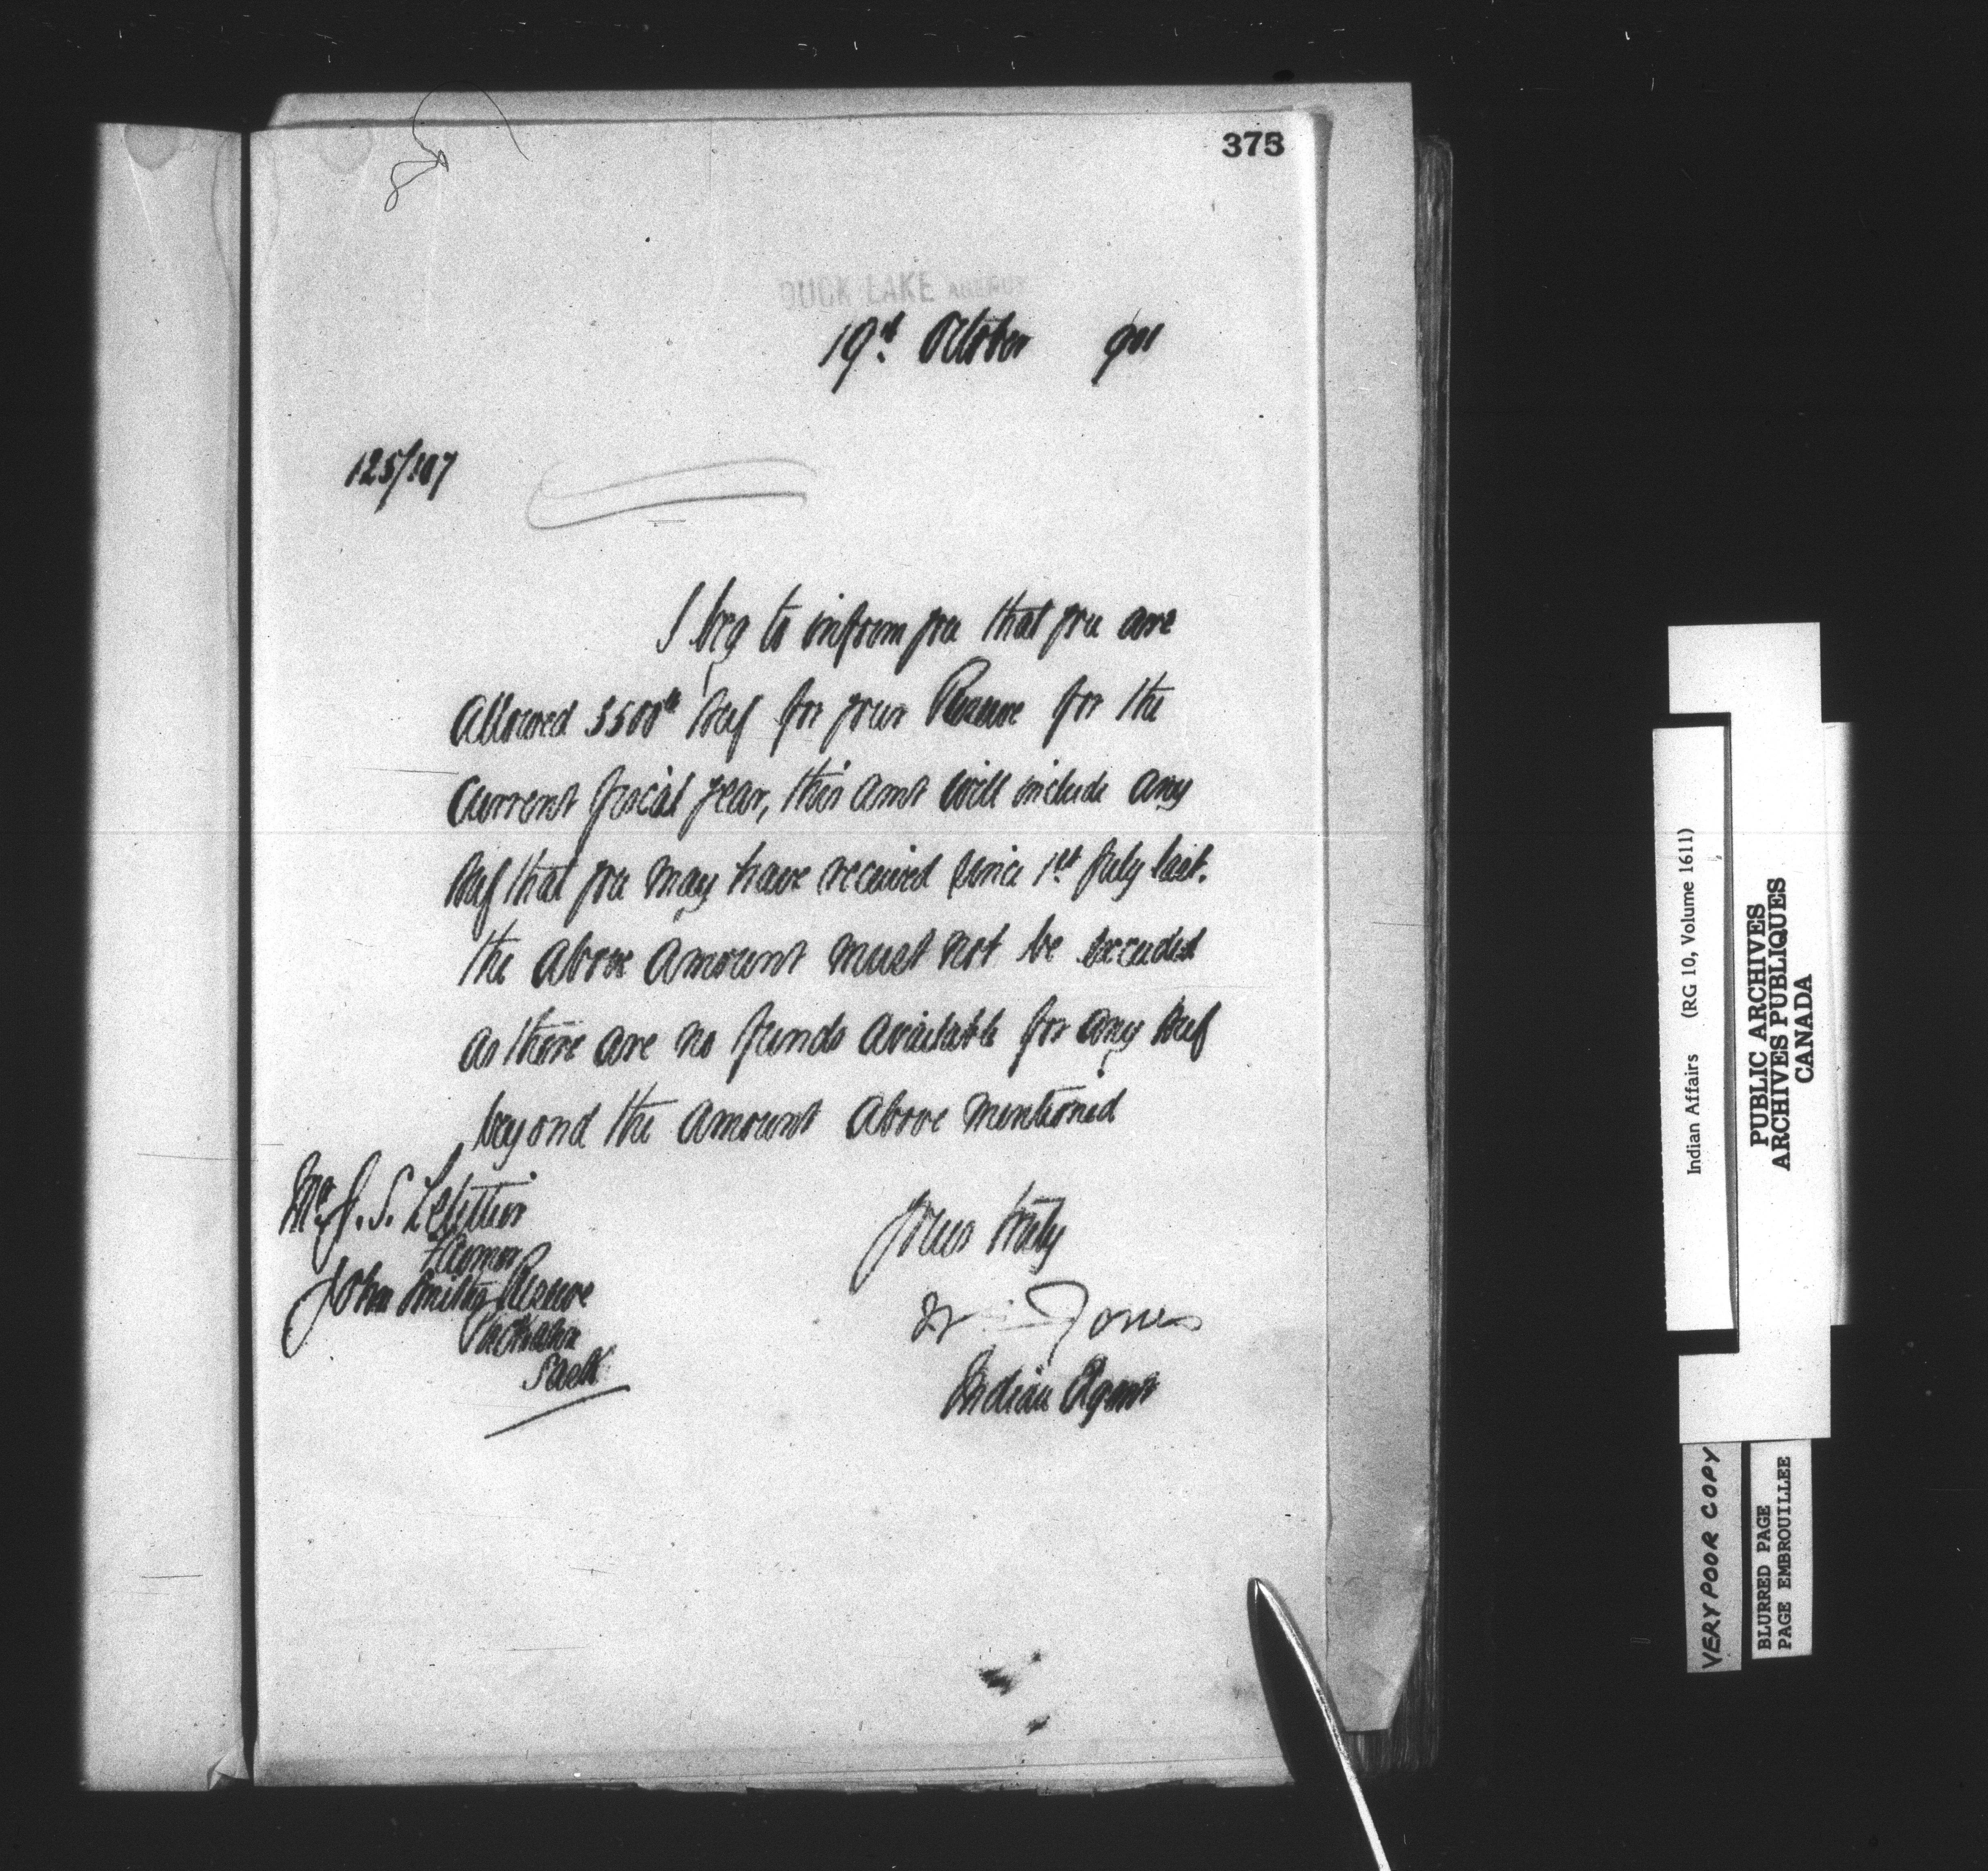 375
DUCK LAKE AGENCY
19th October 901
125/107
I beg to inform you that you are
allowed 3500lb beef for your Reserve for the
current fiscal year, this amt will include any
beef that you may have received since 1st July last.
the above amount must not be exceeded
as there are no funds available for any beef
beyond the amount above mentioned
Mr. J. S. Letellier
Farmer
John Smiths Reserve
Sask
Yours truly
Jones
Indian Agent
Indian Affairs (RG 10, Volume 1611)
PUBLIC ARCHIVES
ARCHIVES PUBLIQUES
CANADA
VERY POOR COPY
BLURRED PAGE
PAGE EMBROUILLEE